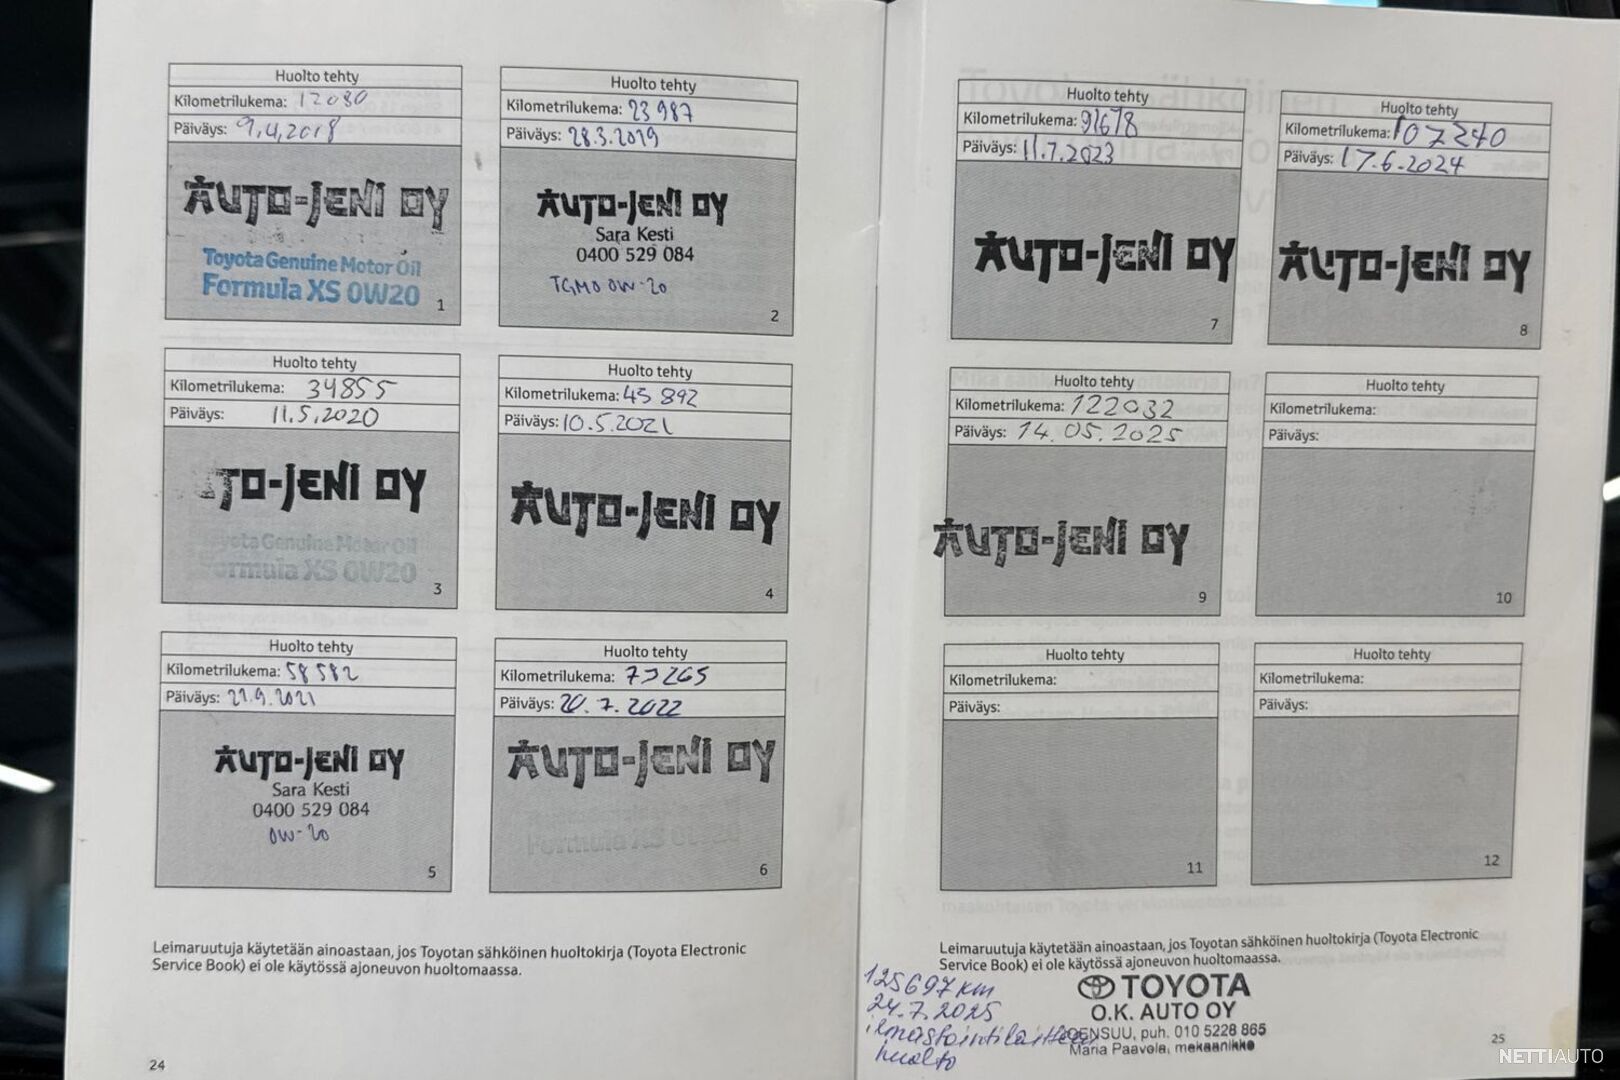 Huolto tehty
Kilometrilukema: 12080
Päiväys: 9.4.2018
AUTO-JENI OY
Toyota Genuine Motor Oil
Formula XS 0W20
1
Huolto tehty
Kilometrilukema: 23 987
Päiväys: 28.3.2019
AUTO-JENI OY
Sara Kesti
0400 529 084
TGMO 0W-20
2
Huolto tehty
Kilometrilukema: 34855
Päiväys: 11.5.2020
TO-JENI OY
Toyota Genuine Motor Oil
Formula XS 0W20
3
Huolto tehty
Kilometrilukema: 45 892
Päiväys: 10.5.2021
AUTO-JENI OY
4
Huolto tehty
Kilometrilukema: 58 582
Päiväys: 21.9.2021
AUTO-JENI OY
Sara Kesti
0400 529 084
0W-20
5
Huolto tehty
Kilometrilukema:
Päiväys: 20.7.2022
AUTO-JENI OY
Formula XS 0W20
6
Leimaruutuja käytetään ainoastaan, jos Toyotan sähköinen huoltokirja (Toyota Electronic
Service Book) ei ole käytössä ajoneuvon huoltomaassa.
24
Huolto tehty
Kilometrilukema: 91678
Päiväys: 11.7.2023
AUTO-JENI OY
7
Huolto tehty
Kilometrilukema: 107240
Päiväys: 17.6.2024
AUTO-JENI OY
8
Huolto tehty
Kilometrilukema: 122032
Päiväys: 14.05.2025
AUTO-JENI OY
9
Huolto tehty
Kilometrilukema:
Päiväys:
10
Huolto tehty
Kilometrilukema:
Päiväys:
11
Huolto tehty
Kilometrilukema:
Päiväys:
12
Leimaruutuja käytetään ainoastaan, jos Toyotan sähköinen huoltokirja (Toyota Electronic
Service Book) ei ole käytössä ajoneuvon huoltomaassa.
125697 km
24.7.2025
ilmastointilaitteen
huolto
TOYOTA
O.K. AUTO OY
JOENSUU, puh. 010 5228 865
Maria Paavola, mekaanikko
25
NETTIAUTO